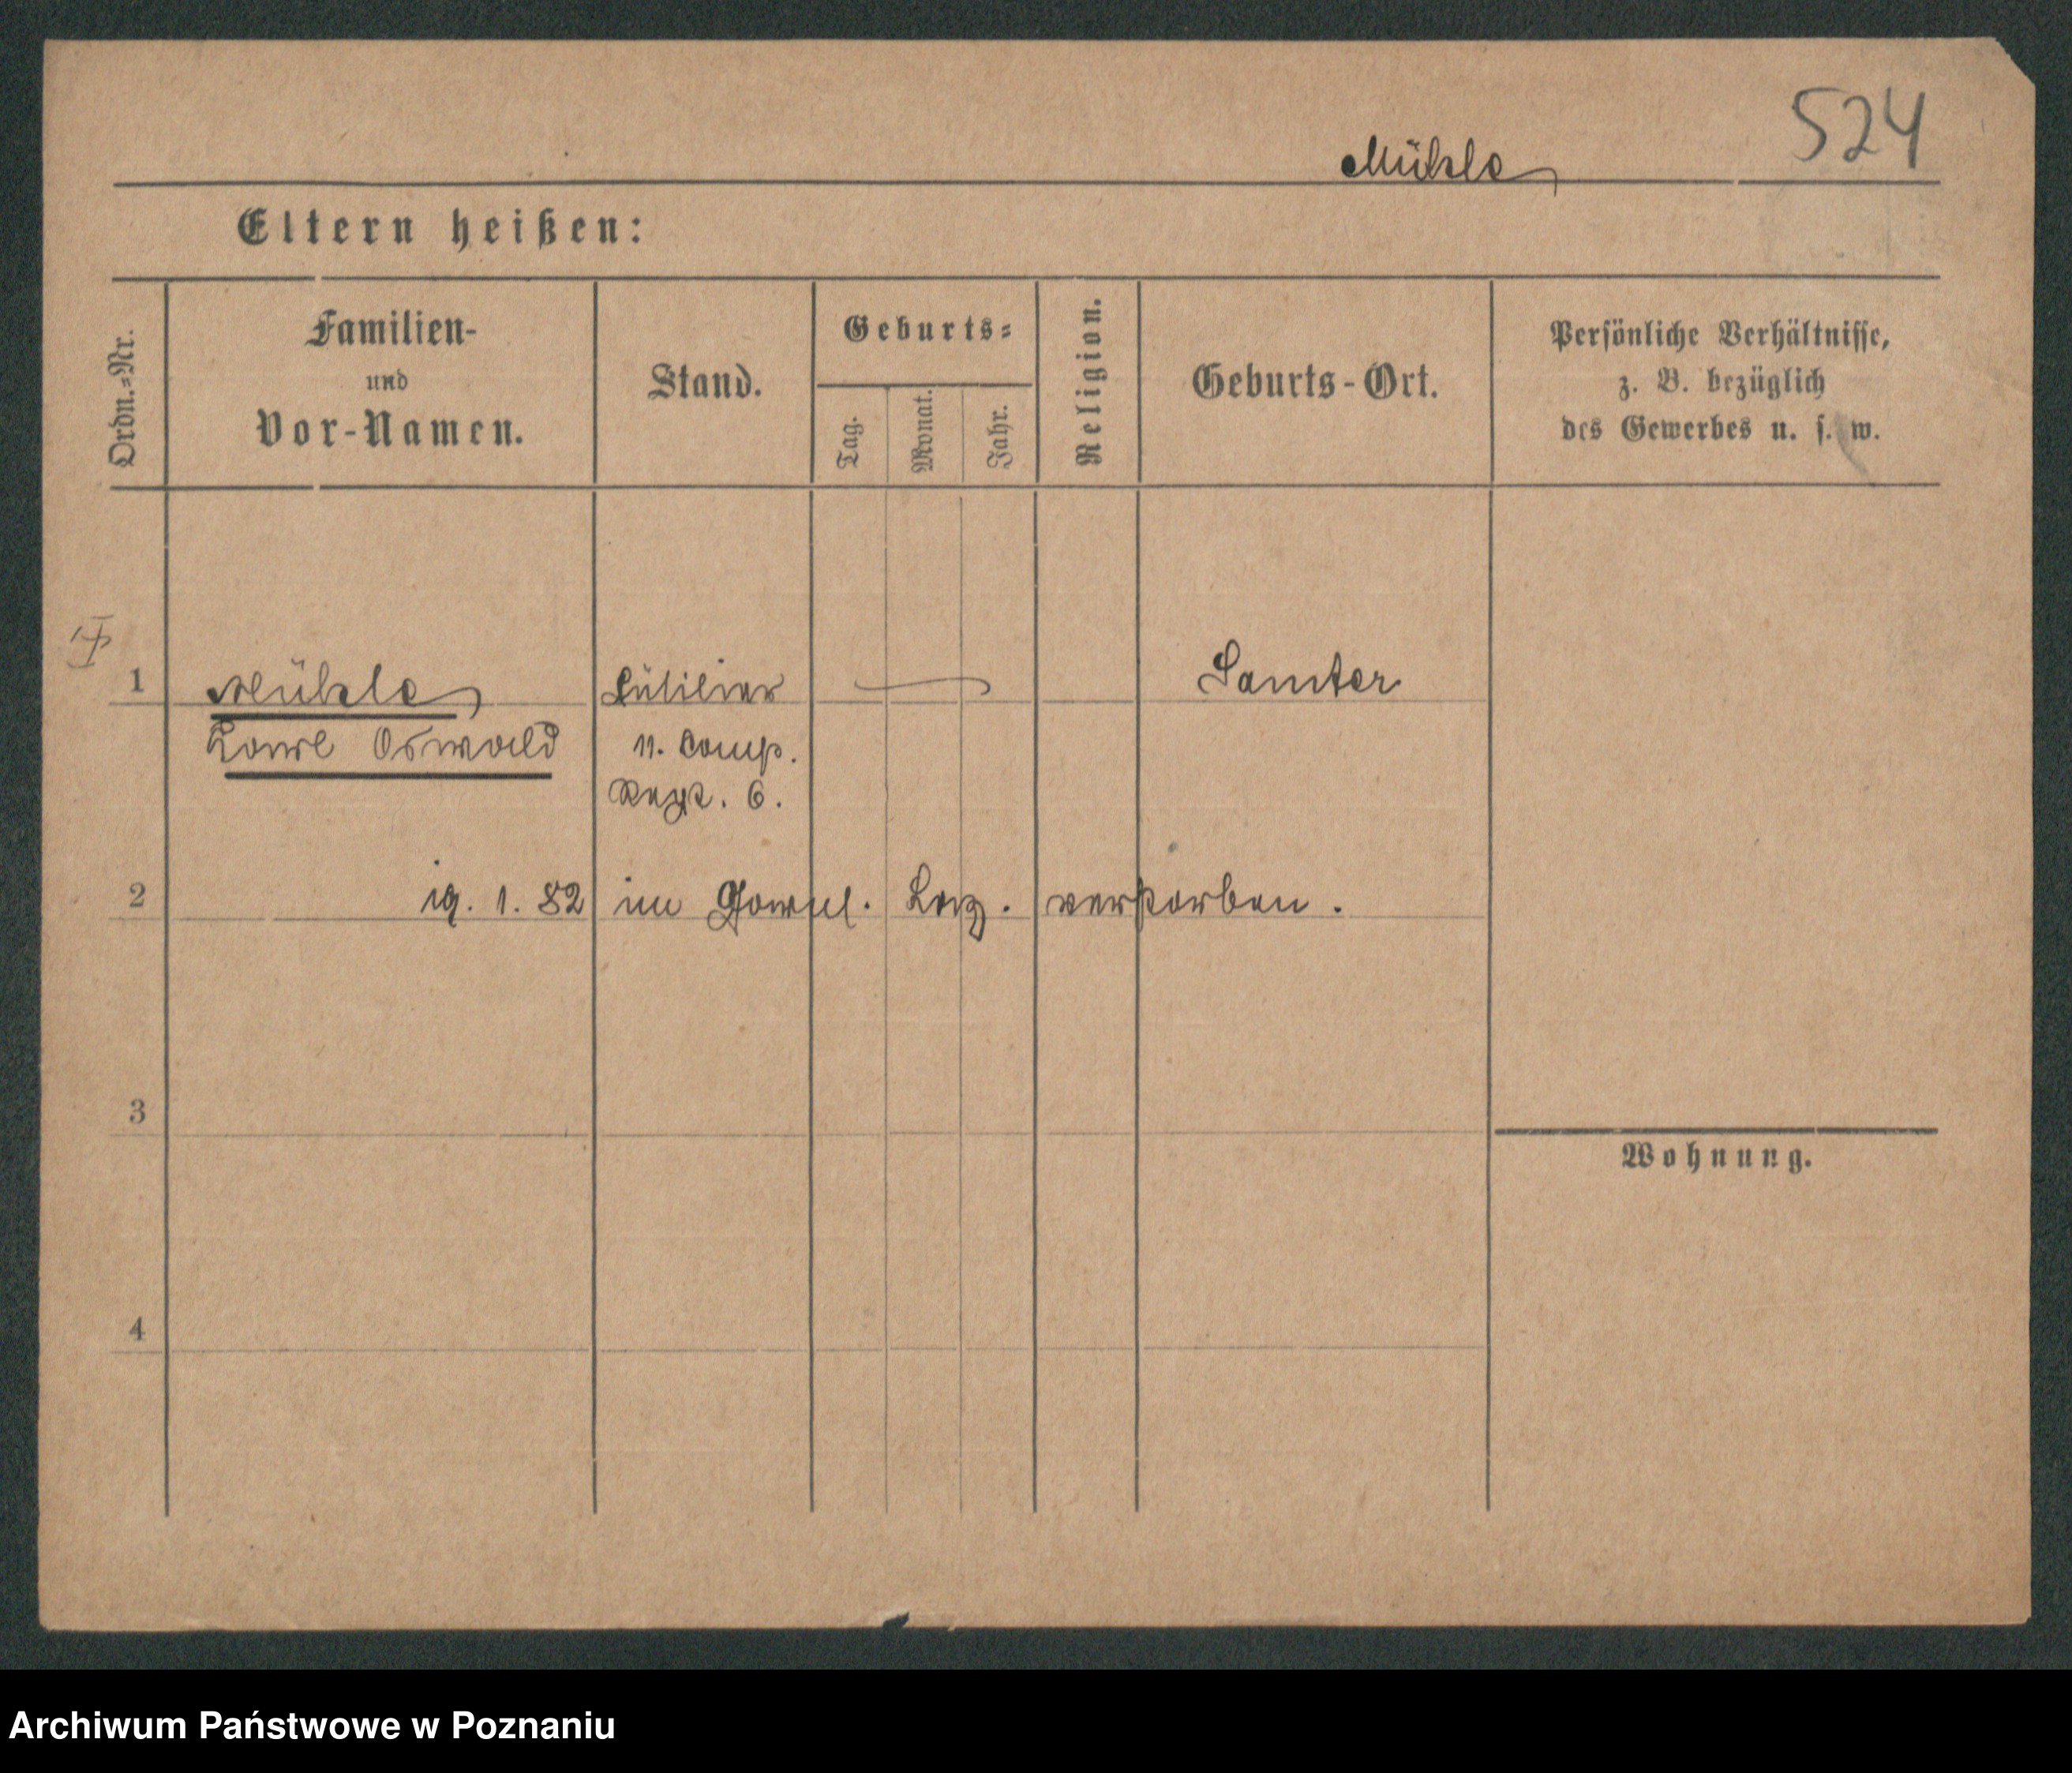 524
Mühle
Eltern heißen:
Ordn.=Nr.
Familien-
und
Vor-Namen.
Stand.
Geburts=
Tag.
Monat.
Jahr.
Religion.
Geburts-Ort.
Persönliche Verhältnisse,
z. B. bezüglich
des Gewerbes u. s. w.
1 Mühle Füsilier Samter
Karl Oswald 11. Comp.
Regt. 6.
2 19. 1. 82 im Garnl. Laz. verstorben.
3
Wohnung.
4
Archiwum Państwowe w Poznaniu